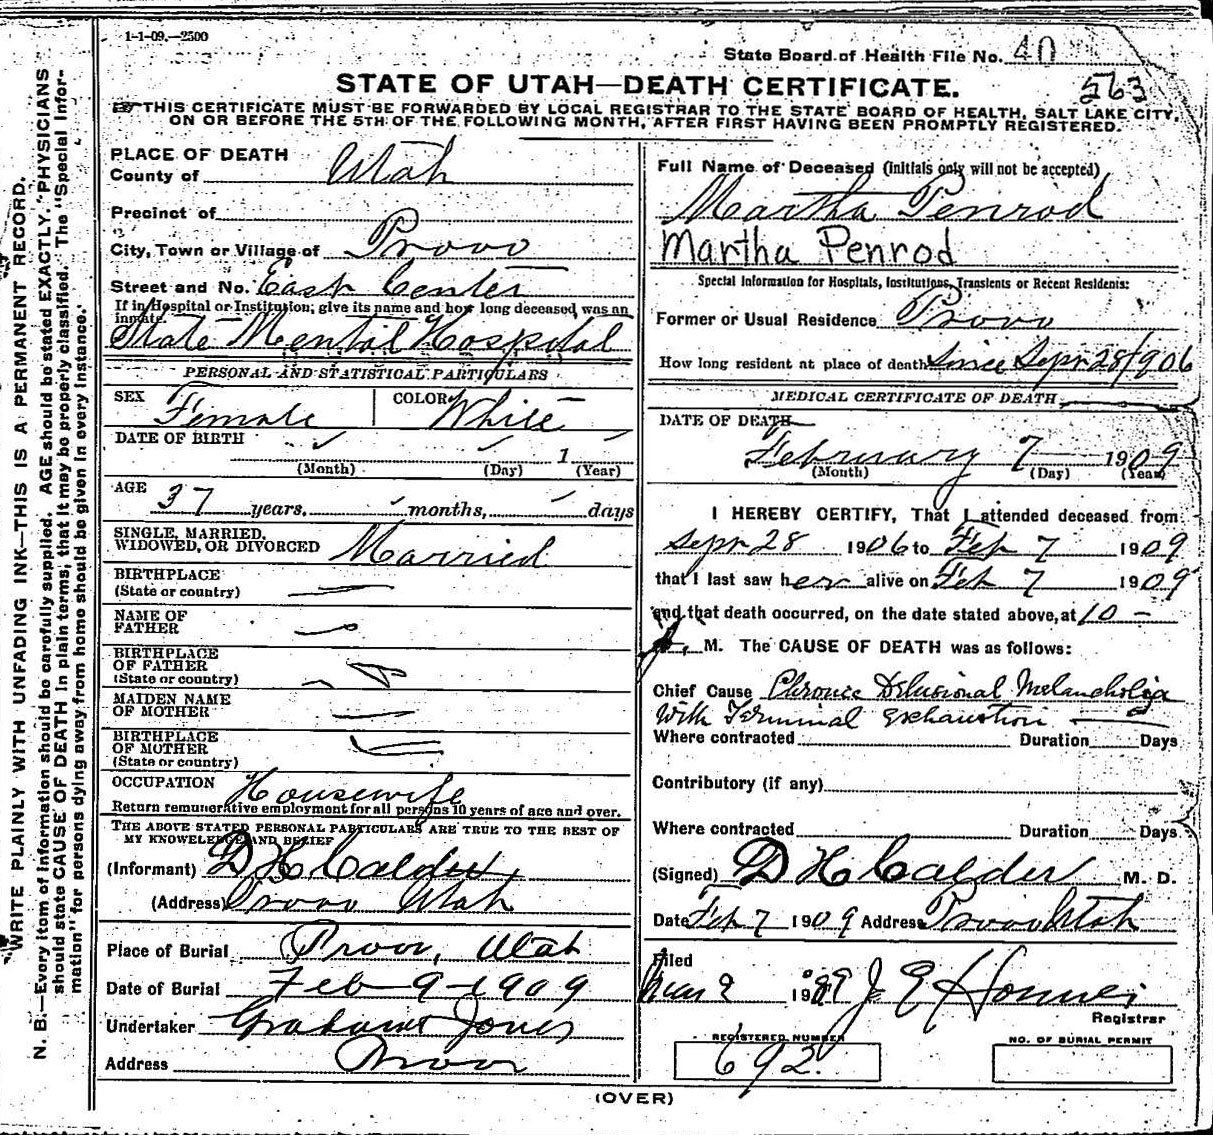 1-1-09.—2500
State Board of Health File No. 40
563
STATE OF UTAH—DEATH CERTIFICATE.
THIS CERTIFICATE MUST BE FORWARDED BY LOCAL REGISTRAR TO THE STATE BOARD OF HEALTH, SALT LAKE CITY,
ON OR BEFORE THE 5TH OF THE FOLLOWING MONTH, AFTER FIRST HAVING BEEN PROMPTLY REGISTERED.
WRITE PLAINLY WITH UNFADING INK—THIS IS A PERMANENT RECORD.
N. B.—Every item of information should be carefully supplied. AGE should be stated EXACTLY. PHYSICIANS
should state CAUSE OF DEATH in plain terms, that it may be properly classified. The "Special Infor-
mation" for persons dying away from home should be given in every instance.
PLACE OF DEATH
County of Utah
Precinct of
City, Town or Village of Provo
Street and No. East Center
If in Hospital or Institution; give its name and how long deceased was an
inmate.
State Mental Hospital
PERSONAL AND STATISTICAL PARTICULARS
SEX Female COLOR White
DATE OF BIRTH
1
(Month) (Day) (Year)
AGE
37 years, months, days
SINGLE, MARRIED,
WIDOWED, OR DIVORCED Married
BIRTHPLACE
(State or country)
NAME OF
FATHER
BIRTHPLACE
OF FATHER
(State or country)
MAIDEN NAME
OF MOTHER
BIRTHPLACE
OF MOTHER
(State or country)
OCCUPATION Housewife
Return remunerative employment for all persons 10 years of age and over.
THE ABOVE STATED PERSONAL PARTICULARS ARE TRUE TO THE BEST OF
MY KNOWELEDGE AND BELIEF
(Informant) D H Calder
(Address) Provo Utah
Place of Burial Provo, Utah
Date of Burial Feb 9 - 1909
Undertaker Jones
Address Provo
Full Name of Deceased (initials only will not be accepted)
Martha Penrod
Martha Penrod
Special Information for Hospitals, Institutions, Transients or Recent Residents:
Former or Usual Residence Provo
How long resident at place of death Since Sept 28/906
MEDICAL CERTIFICATE OF DEATH
DATE OF DEATH
February 7 1909
(Month) (Day) (Year)
I HEREBY CERTIFY, That I attended deceased from
Sept 28 1906 to Feb 7 1909
that I last saw her alive on Feb 7 1909
and that death occurred, on the date stated above, at 10 —
M. The CAUSE OF DEATH was as follows:
Chief Cause Chronic Delusional Melancholia
With Terminal Exhaustion
Where contracted Duration Days
Contributory (if any)
Where contracted Duration Days
(Signed) D H Calder M. D.
Date Feb 7 1909 Address Provo Utah
Filed
190 J E
Registrar
REGISTERED NUMBER
692.
NO. OF BURIAL PERMIT
(OVER)